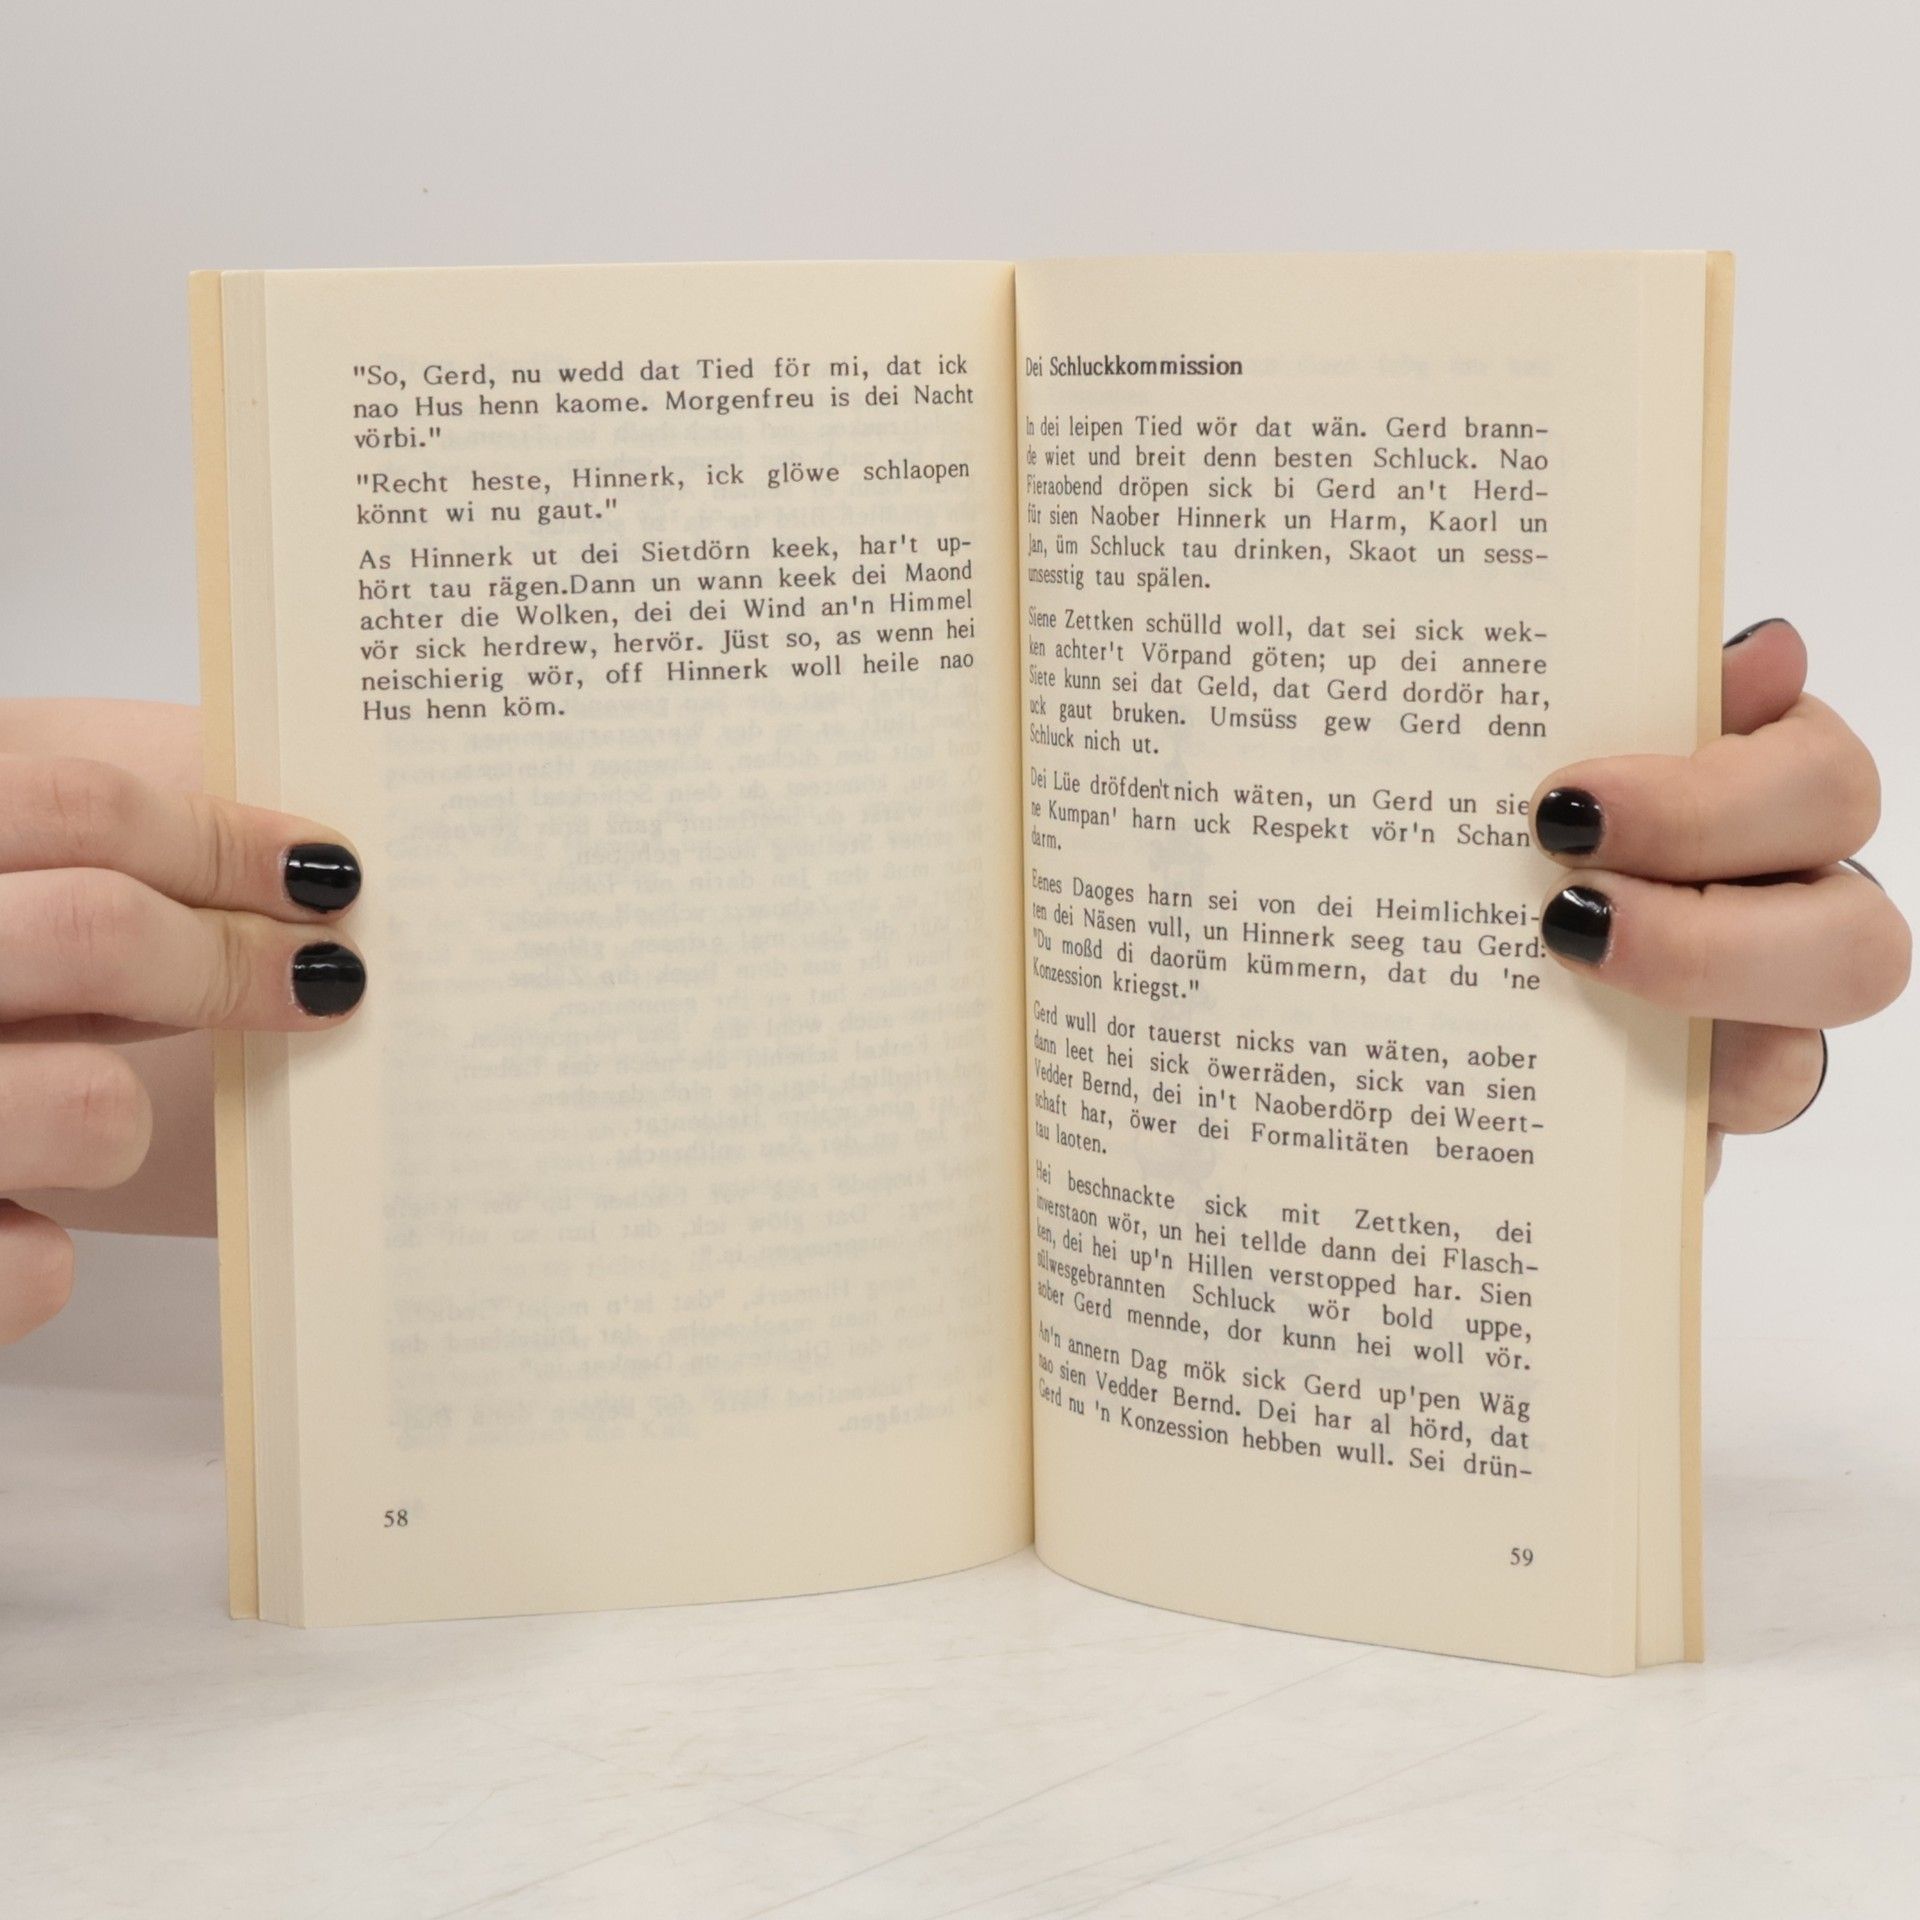 "So, Gerd, nu wedd dat Tied för mi, dat ick
nao Hus henn kaome. Morgenfreu is dei Nacht
vörbi."
"Recht heste, Hinnerk, ick glöwe schlaopen
könnt wi nu gaut."
As Hinnerk ut dei Sietdörn keek, har't up-
hört tau rägen.Dann un wann keek dei Maond
achter die Wolken, dei dei Wind an'n Himmel
vör sick herdrew, hervör. Jüst so, as wenn hei
neischierig wör, off Hinnerk woll heile nao
Hus henn köm.
58
Dei Schluckkommission
In dei leipen Tied wör dat wän. Gerd brann-
de wiet und breit denn besten Schluck. Nao
Fieraobend dröpen sick bi Gerd an't Herd-
für sien Naober Hinnerk un Harm, Kaorl un
Jan, üm Schluck tau drinken, Skaot un sess-
unsesstig tau spälen.
Siene Zettken schülld woll, dat sei sick wek-
ken achter't Vörpand göten; up dei annere
Siete kunn sei dat Geld, dat Gerd dordör har,
uck gaut bruken. Umsüss gew Gerd denn
Schluck nich ut.
Dei Lüe dröfden't nich wäten, un Gerd un sie
ne Kumpan' harn uck Respekt vör'n Schan
darm.
Eenes Daoges harn sei von dei Heimlichkei-
ten dei Näsen vull, un Hinnerk seeg tau Gerd:
"Du moßd di daorüm kümmern, dat du 'ne
Konzession kriegst."
Gerd wull dor tauerst nicks van wäten, aober
dann leet hei sick öwerräden, sick van sien
Vedder Bernd, dei in't Naoberdörp dei Weert-
schaft har, öwer dei Formalitäten beraoen
tau laoten.
Hei beschnackte sick mit Zettken, dei
inverstaon wör, un hei tellde dann dei Flasch-
ken, dei hei up'n Hillen verstopped har. Sien
sülwesgebrannten Schluck wör bold uppe,
aober Gerd mennde, dor kunn hei woll vör.
An'n annern Dag mök sick Gerd up'pen Wäg
nao sien Vedder Bernd. Dei har al hörd, dat
Gerd nu 'n Konzession hebben wull. Sei drün-
59